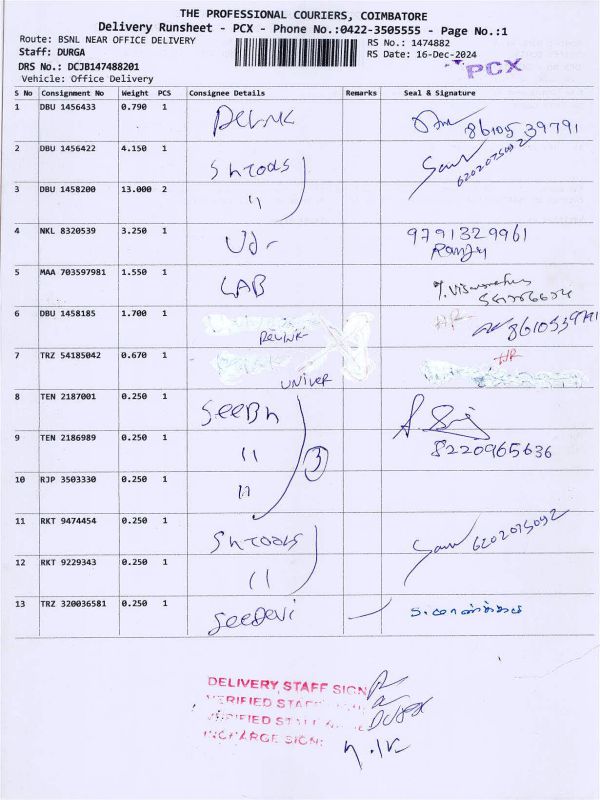 THE PROFESSIONAL COURIERS, COIMBATORE
Delivery Runsheet - PCX - Phone No.:0422-3505555 - Page No.:1
Route: BSNL NEAR OFFICE DELIVERY RS No.: 1474882
Staff: DURGA RS Date: 16-Dec-2024
DRS No.: DCJB147488201 PCX
Vehicle: Office Delivery
S No Consignment No Weight PCS Consignee Details Remarks Seal & Signature
1 DBU 1456433 0.790 1 8610539791
2 DBU 1456422 4.150 1 Sh Tools 6202075092
3 DBU 1458200 13.000 2 "
4 NKL 8320539 3.250 1 9791329961
Ranju
5 MAA 703597981 1.550 1 LAB
6 DBU 1458185 1.700 1 8610539791
7 TRZ 54185042 0.670 1 UNIVER
8 TEN 2187001 0.250 1
9 TEN 2186989 0.250 1 " 3 8220965636
10 RJP 3503330 0.250 1 "
11 RKT 9474454 0.250 1 Sh Tools 6202075092
12 RKT 9229343 0.250 1 "
13 TRZ 320036581 0.250 1 SeeDevi
DELIVERY STAFF SIGN
VERIFIED STAFF
VERIFIED STAFF
INCHARGE SIGN: